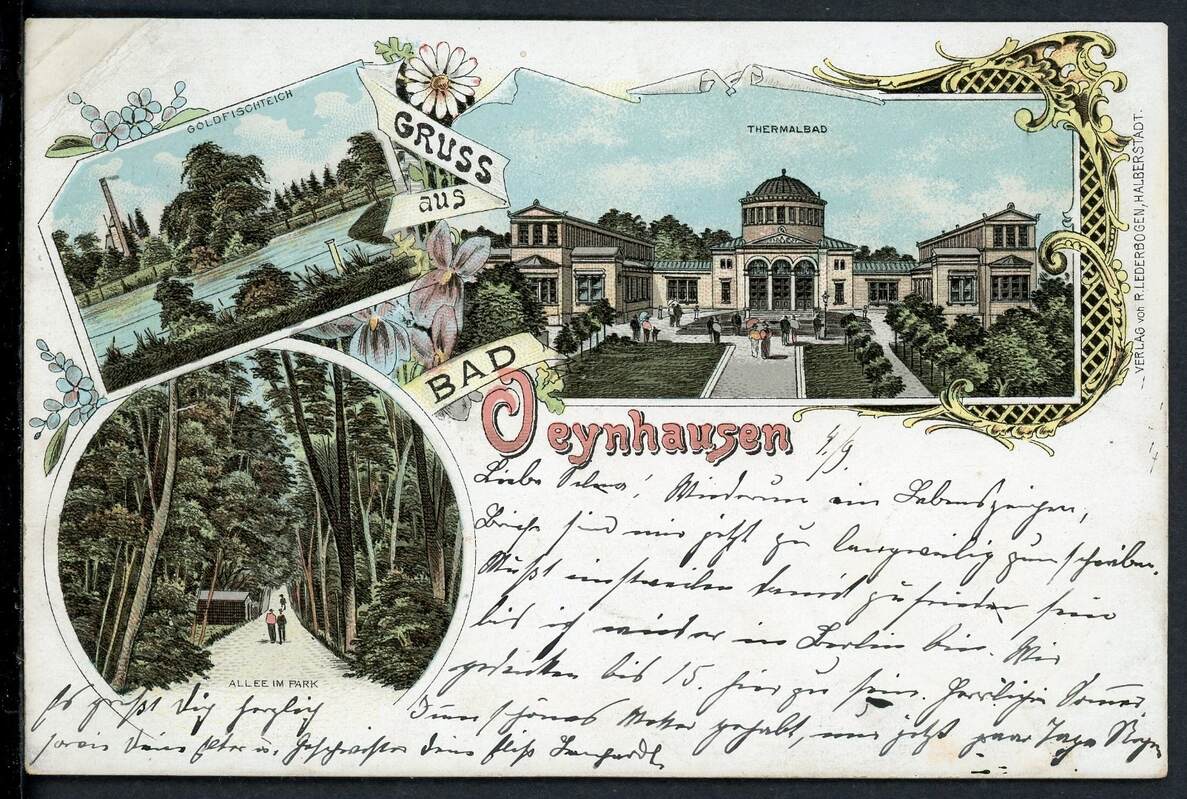 GOLDFISCHTEICH
GRUSS
aus
BAD
Oeynhausen
THERMALBAD
VERLAG von R. LEDERBOGEN, HALBERSTADT.
ALLEE IM PARK
4/9.
Liebe Selma! Wiederum ein Lebenszeichen,
Briefe sind mir jetzt zu langweilig zum schreiben.
Mußt einstweilen damit zufrieden sein
bis ich wieder in Berlin bin. Wir
gedenken bis 15. hier zu sein. Herrliches Sommer,
schönes Wetter gehabt, nur jetzt paar Tage Regen
Es grüßt Dich herzlich
sowie Deine Elter u. Geschwister deine